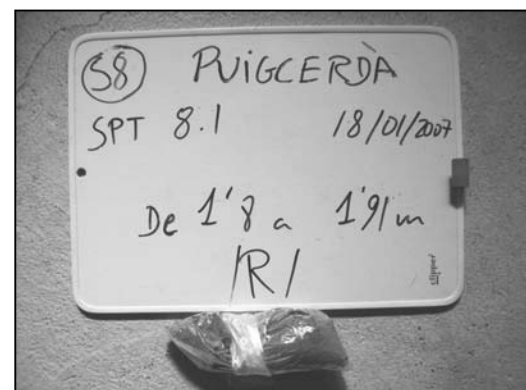 S8 PUIGCERDÀ
SPT 8.1 18/01/2007
De 1'8 a 1'91 m
/R/